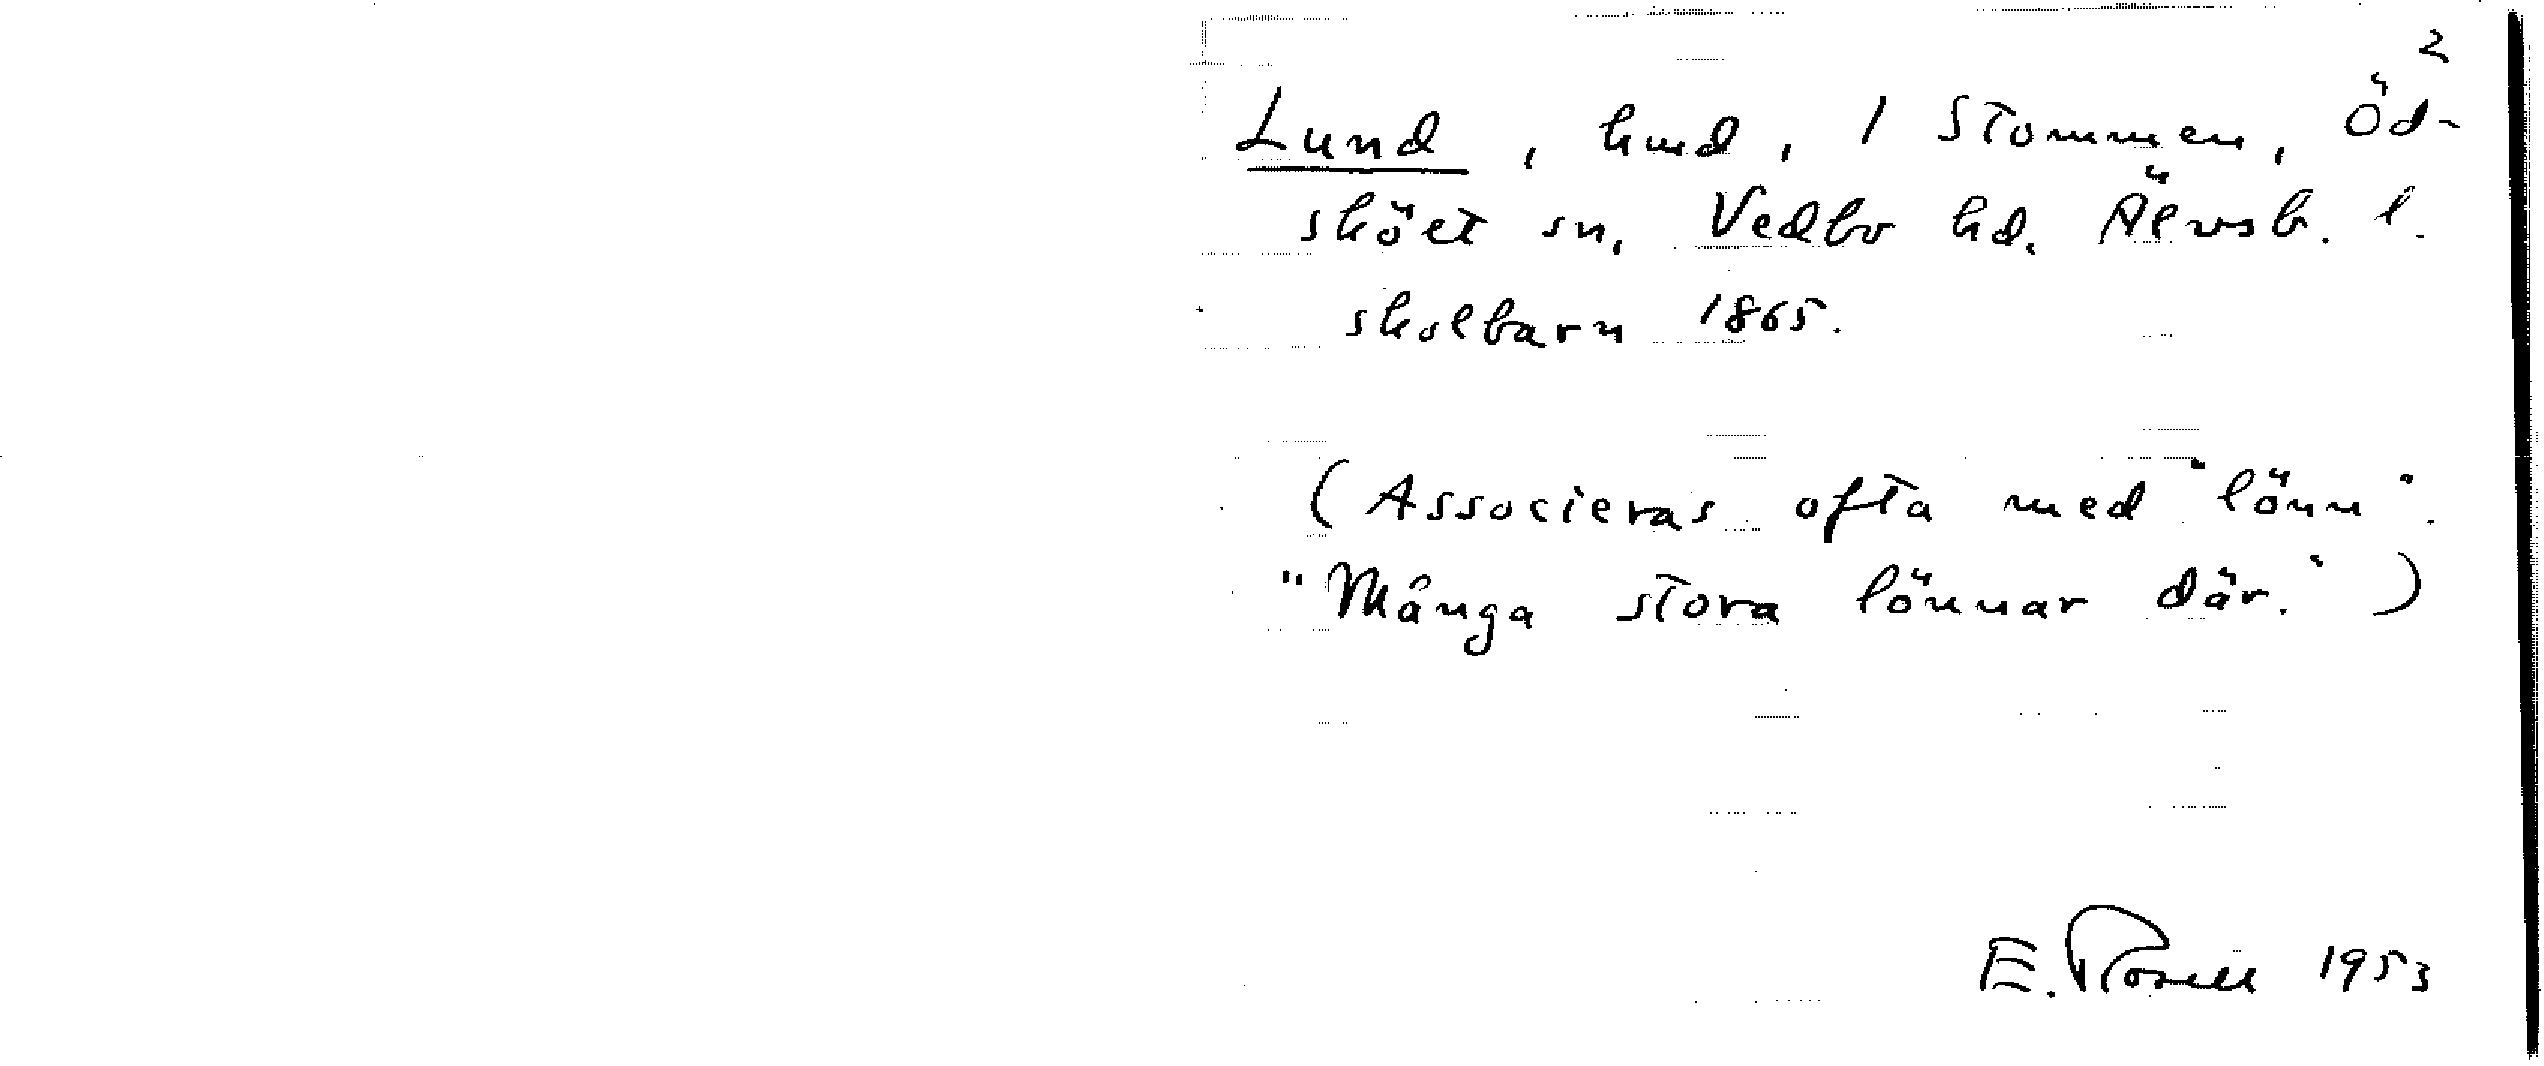 2
Lund, hmd, 1 Stommen, Öd-
skölt sn, Vedbo hd. Älvsb. l.
skolbarn 1865.
(Associeras ofta med "lönn".
"Många stora lönnar där.")
E. Rosell 1953